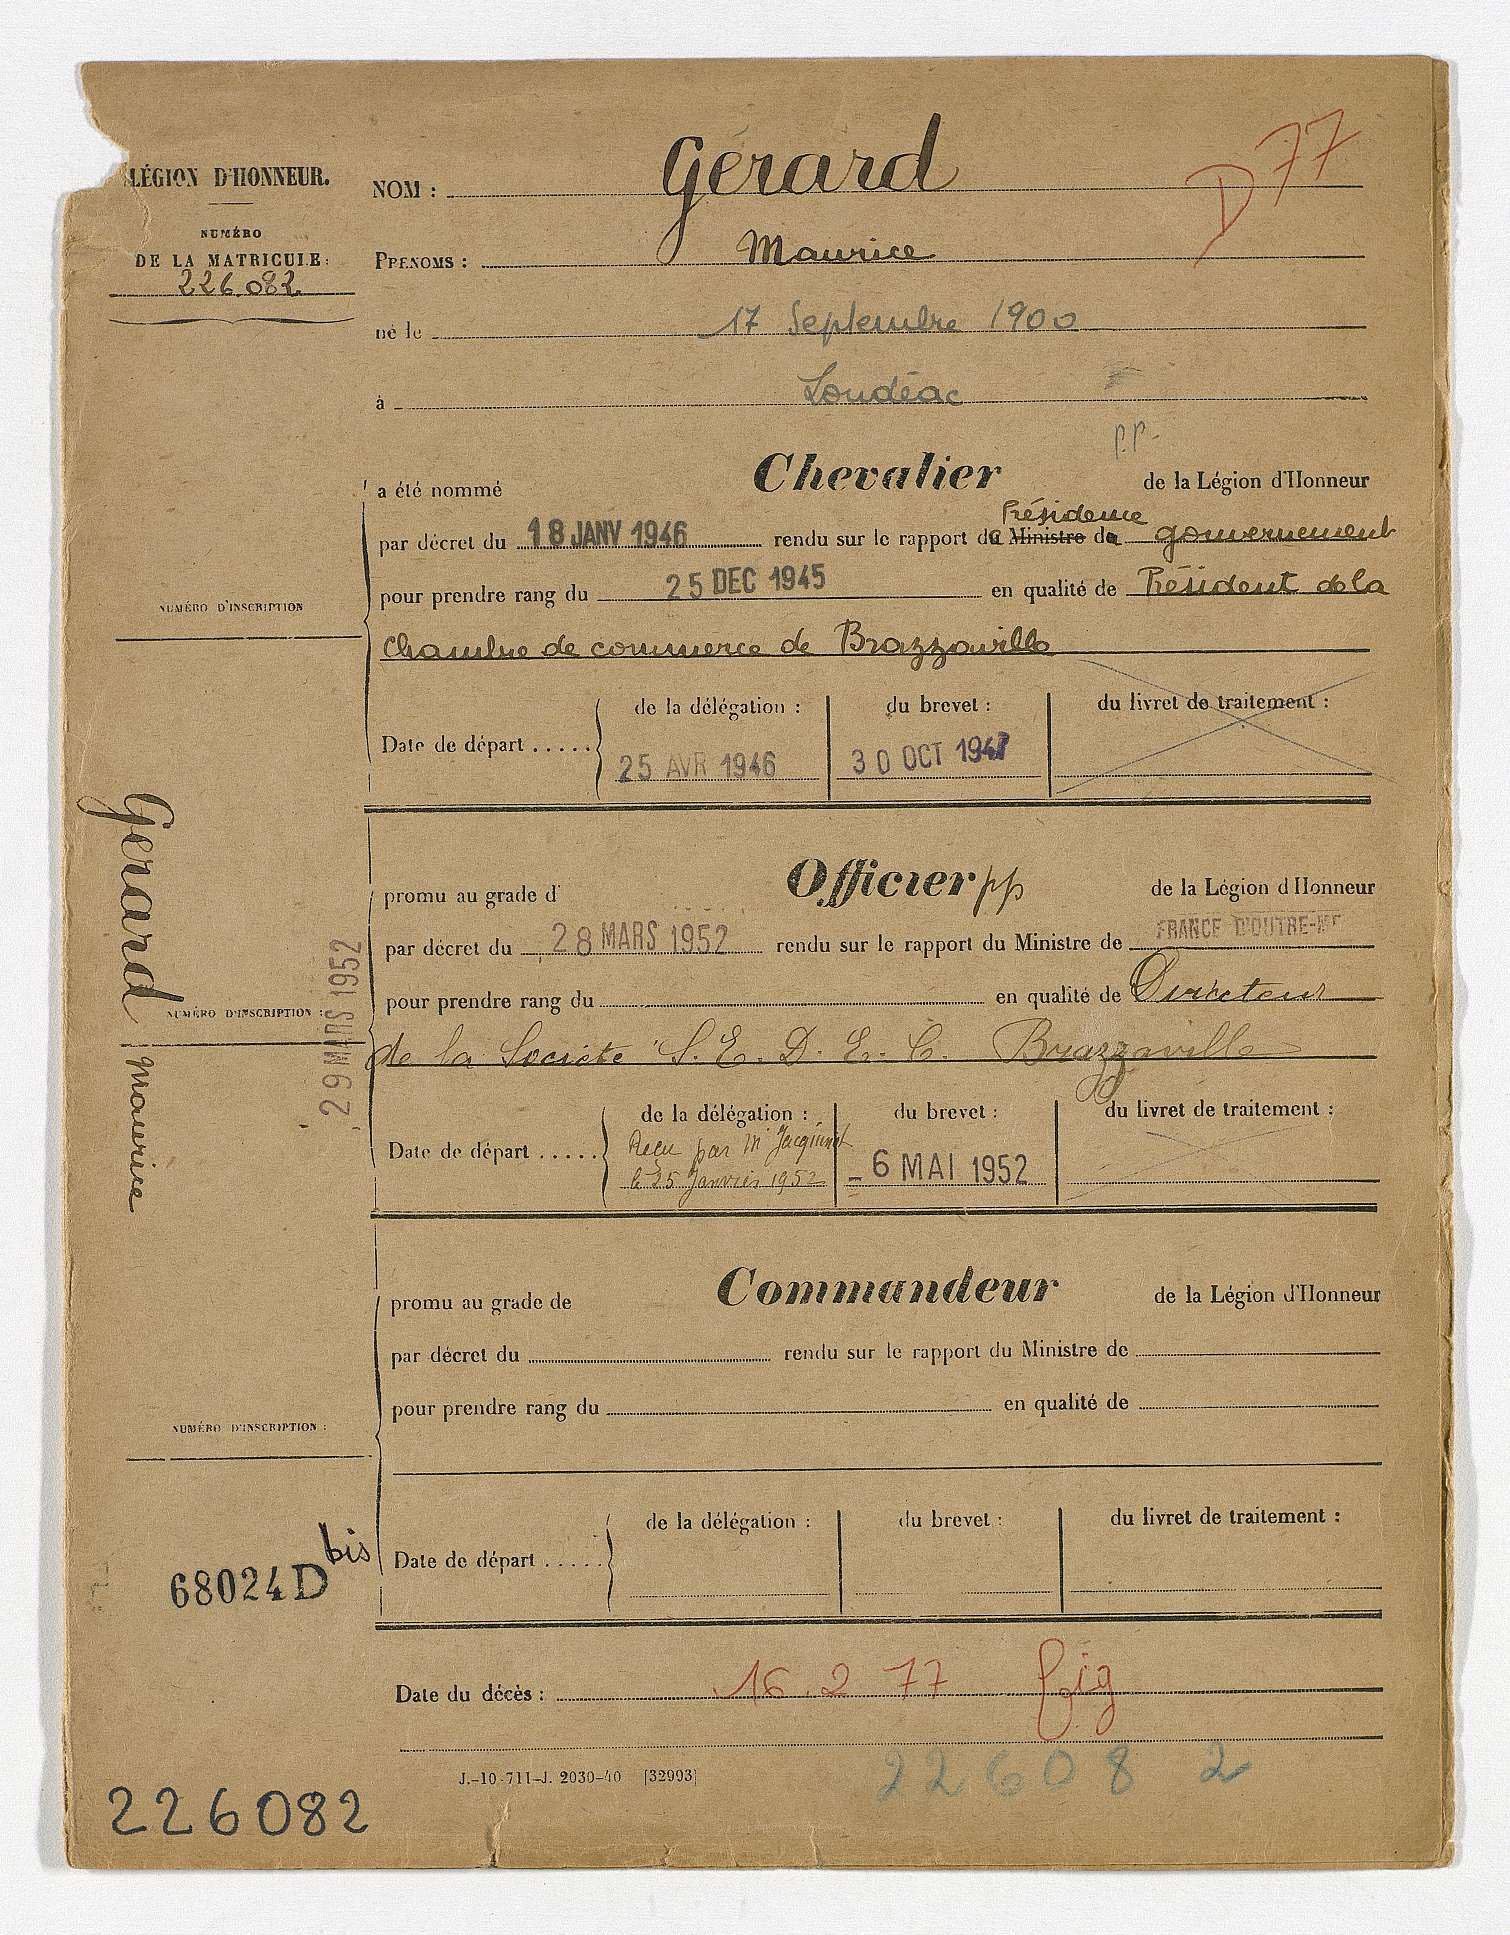 LÉGION D'HONNEUR.
NUMÉRO
DE LA MATRICULE:
226.082
D 77
NOM : Gérard
PRÉNOMS : Maurice
né le 17 Septembre 1900
à Loudéac
p.p.
a été nommé Chevalier de la Légion d'Honneur
Présidence
par décret du 18 JANV 1946 rendu sur le rapport du Ministre de gouvernement
pour prendre rang du 25 DEC 1945 en qualité de Président de la
Chambre de commerce de Brazzaville
NUMÉRO D'INSCRIPTION
Date de départ ..... de la délégation : du brevet : du livret de traitement :
25 AVR 1946 30 OCT 1947
Gérard Maurice
promu au grade d' Officier pp de la Légion d'Honneur
par décret du 28 MARS 1952 rendu sur le rapport du Ministre de FRANCE D'OUTRE-MER
pour prendre rang du en qualité de Directeur
de la Société S. E. D. E. C. Brazzaville
NUMÉRO D'INSCRIPTION :
29 MARS 1952
Date de départ ..... de la délégation : du brevet : du livret de traitement :
Reçu par Mr Jacquinot
le 25 Janvier 1952 - 6 MAI 1952
promu au grade de Commandeur de la Légion d'Honneur
par décret du rendu sur le rapport du Ministre de
pour prendre rang du en qualité de
NUMÉRO D'INSCRIPTION :
Date de départ ..... de la délégation : du brevet : du livret de traitement :
68024 D bis
Date du décès : 16.2 77
J.-10-711-J. 2030-40 [32993]
226082
226082